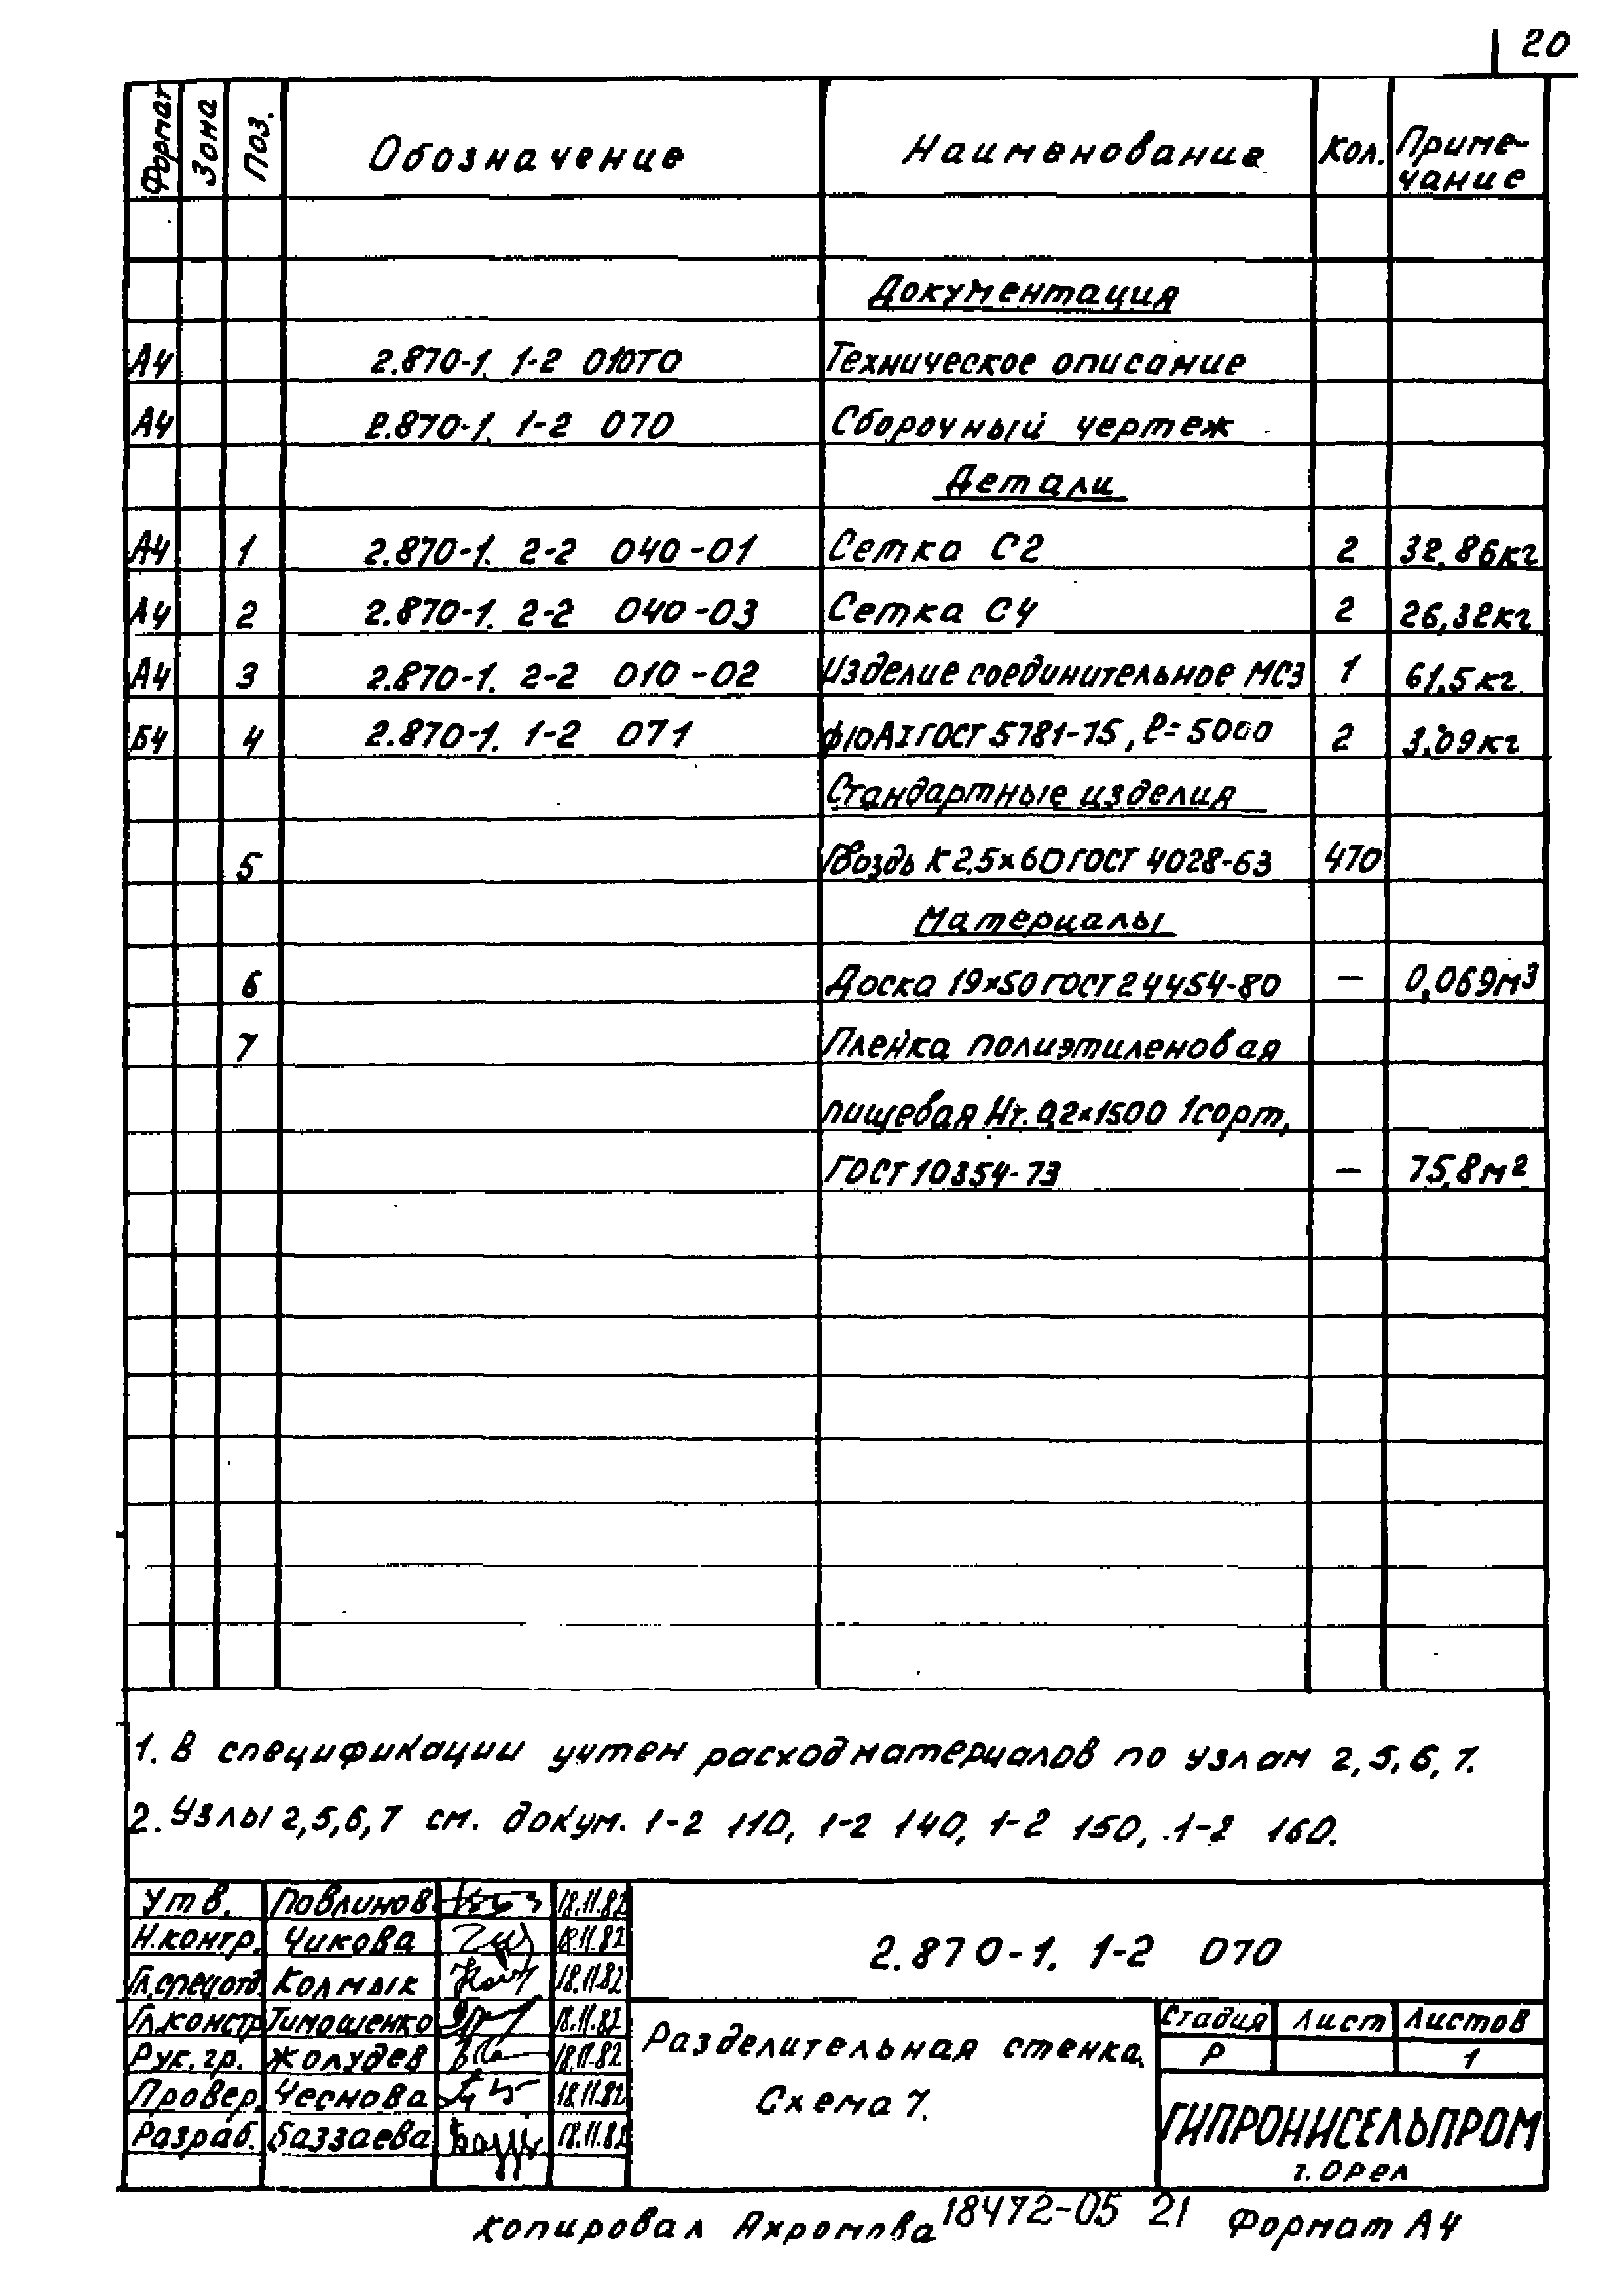 20
Формат Зона Поз. Обозначение Наименование Кол. Приме-
чание
Документация
А4 2.870-1. 1-2 010ТО Техническое описание
А4 2.870-1. 1-2 070 Сборочный чертеж
Детали
А4 1 2.870-1. 2-2 040-01 Сетка С2 2 32,86кг
А4 2 2.870-1. 2-2 040-03 Сетка С4 2 26,32кг
А4 3 2.870-1. 2-2 010-02 Изделие соединительное МС3 1 61,5кг
Б4 4 2.870-1. 1-2 071 ф10АI ГОСТ 5781-75, ℓ=5000 2 3,09кг
Стандартные изделия
5 Гвоздь К 2,5×60 ГОСТ 4028-63 470
Материалы
6 Доска 19×50 ГОСТ 24454-80 — 0,069м³
7 Пленка полиэтиленовая
пищевая Нт. 0,2×1500 1сорт,
ГОСТ 10354-73 — 75,8м²
1. В спецификации учтен расход материалов по узлам 2,5,6,7.
2. Узлы 2,5,6,7 см. докум. 1-2 110, 1-2 140, 1-2 150, 1-2 160.
Утв. Павлинов 18.11.82
Н.контр. Чикова 18.11.82
Гл.спец.отд. Колмык 18.11.82
Гл.констр. Тимошенко 18.11.82
Рук.гр. Жолудев 18.11.82
Провер. Чеснова 18.11.82
Разраб. Баззаева 18.11.82
2.870-1. 1-2 070
Разделительная стенка.
Схема 7.
Стадия Лист Листов
Р 1
ГИПРОНИСЕЛЬПРОМ
г. Орел
Копировал Ахромова 18472-05 21 Формат А4